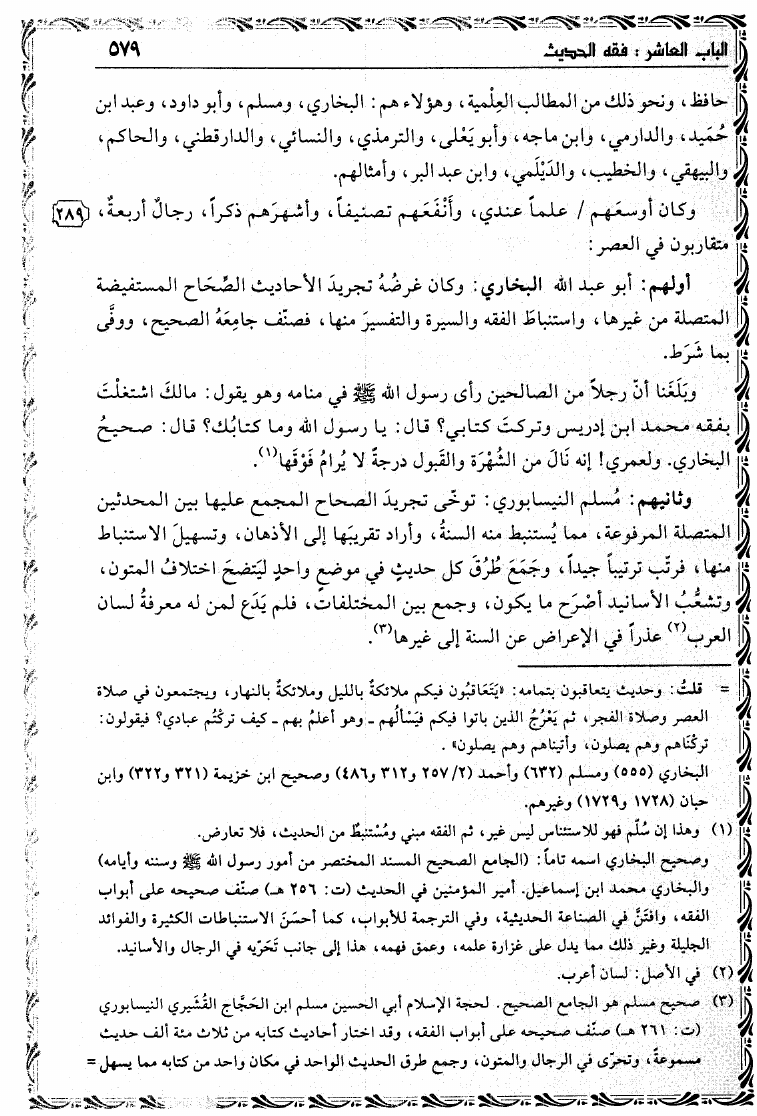 الباب العاشر : فقه الحديث ٥٧٩
حافظ، ونحو ذلك من المطالب العِلْمية، وهؤلاء هم: البخاري، ومسلم، وأبو داود، وعبد ابن
حُمَيد، والدارمي، وابن ماجه، وأبو يَعْلى، والترمذي، والنسائي، والدارقطني، والحاكم،
والبيهقي، والخطيب، والدَّيْلَمي، وابن عبد البر، وأمثالهم.
وكان أوسعَهم / علماً عندي، وأَنْفَعَهم تصنيفاً، وأشهرَهم ذكراً، رجالٌ أربعةٌ، ٢٨٩
متقاربون في العصر:
أولهم: أبو عبد الله البخاري: وكان غرضُهُ تجريدَ الأحاديث الصِّحَاح المستفيضة
المتصلة من غيرها، واستنباطَ الفقه والسيرة والتفسيرَ منها، فصنّف جامِعَهُ الصحيح، ووفَّى
بما شَرَط.
وبَلَغَنا أنّ رجلاً من الصالحين رأى رسول الله ﷺ في منامه وهو يقول: مالكَ اشتغلْتَ
بفقه محمد ابن إدريس وتركتَ كتابي؟ قال: يا رسول الله وما كتابُك؟ قال: صحيحُ
البخاري. ولعمري! إنه نَالَ من الشُهْرَة والقَبول درجةً لا يُرامُ فَوْقَها(١).
وثانيهم: مُسلم النيسابوري: توخّى تجريدَ الصحاح المجمع عليها بين المحدثين
المتصلة المرفوعة، مما يُستنبط منه السنةُ، وأراد تقريبَها إلى الأذهان، وتسهيلَ الاستنباط
منها، فرتّب ترتيباً جيداً، وجَمَعَ طُرُقَ كل حديثٍ في موضعٍ واحدٍ ليَتضحَ اختلافُ المتون،
وتشعُّبُ الأسانيد أصْرَح ما يكون، وجمع بين المختلفات، فلم يَدَع لمن له معرفةُ لسان
العرب(٢) عذراً في الإعراض عن السنة إلى غيرها(٣).
= قلتُ: وحديث يتعاقبون بتمامه: «يَتَعَاقبُون فيكم ملائكةٌ بالليل وملائكةٌ بالنهار، ويجتمعون في صلاة
العصر وصلاة الفجر، ثم يَعْرُجُ الذين باتوا فيكم فيَسْألُهم ـ وهو أعلمُ بهم ـ كيف تركْتُم عبادي؟ فيقولون:
تركْنَاهم وهم يصلون، وأتيناهم وهم يصلون» .
البخاري (٥٥٥) ومسلم (٦٣٢) وأحمد (٢/ ٢٥٧ و٣١٢ و٤٨٦) وصحيح ابن خزيمة (٣٢١ و٣٢٢) وابن
حبان (١٧٢٨ و١٧٢٩) وغيرهم.
(١) وهذا إن سُلّم فهو للاستئناس ليس غير، ثم الفقه مبني ومُسْتنبطٌ من الحديث، فلا تعارض.
وصحيح البخاري اسمه تاماً: (الجامع الصحيح المسند المختصر من أمور رسول الله ﷺ وسننه وأيامه)
والبخاري محمد ابن إسماعيل. أمير المؤمنين في الحديث (ت: ٢٥٦ هـ) صنّف صحيحه على أبواب
الفقه، وافتَنَّ في الصناعة الحديثية، وفي الترجمة للأبواب، كما أحسَنَ الاستنباطات الكثيرة والفوائد
الجليلة وغير ذلك مما يدل على غزارة علمه، وعمق فهمه، هذا إلى جانب تَحَرّيه في الرجال والأسانيد.
(٢) في الأصل: لسان أعرب.
(٣) صحيح مسلم هو الجامع الصحيح. لحجة الإسلام أبي الحسين مسلم ابن الحَجَّاج القُشَيري النيسابوري
(ت: ٢٦١ هـ) صنّف صحيحه على أبواب الفقه، وقد اختار أحاديث كتابه من ثلاث مئة ألف حديث
مسموعةً، وتحرّى في الرجال والمتون، وجمع طرق الحديث الواحد في مكان واحد من كتابه مما يسهل =